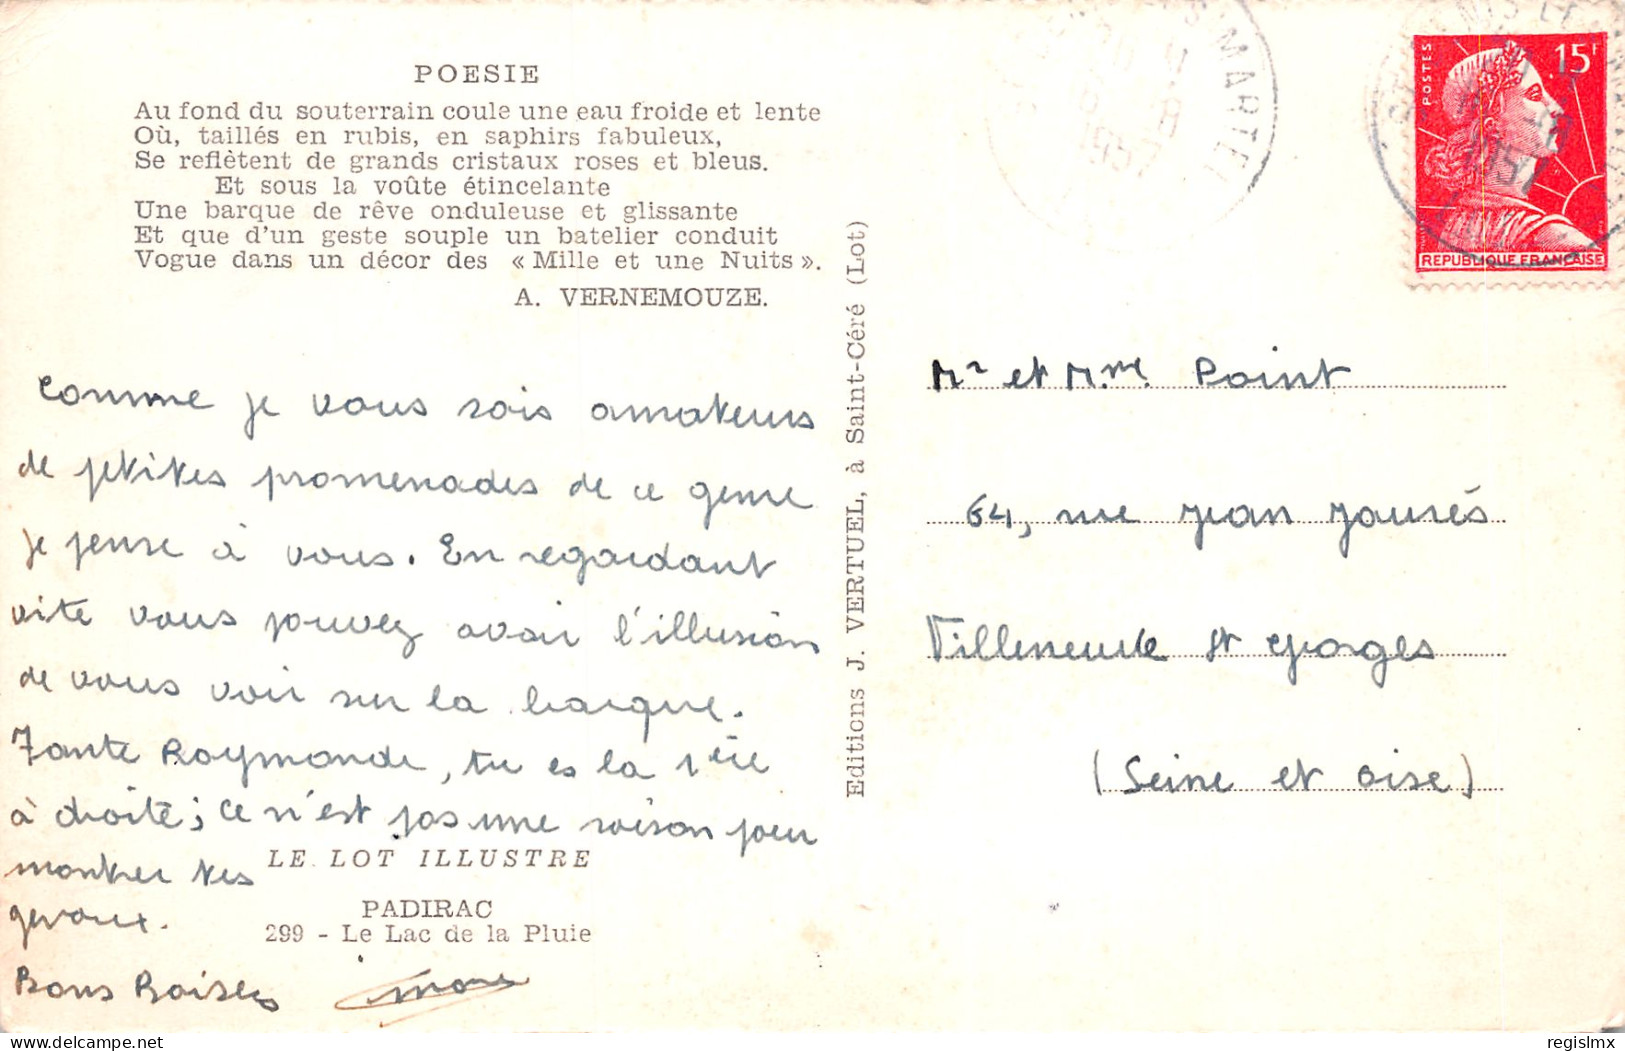 POESIE
Au fond du souterrain coule une eau froide et lente
Où, taillés en rubis, en saphirs fabuleux,
Se reflètent de grands cristaux roses et bleus.
Et sous la voûte étincelante
Une barque de rêve onduleuse et glissante
Et que d'un geste souple un batelier conduit
Vogue dans un décor des « Mille et une Nuits ».
A. VERNEMOUZE.
Comme je vous sais amateurs
de petites promenades de ce genre
je pense à vous. En regardant
vite vous pouvez avoir l'illusion
de vous voir sur la barque.
Tante Raymonde, tu es la 1ère
à droite; ce n'est pas une raison pour
montrer tes
genoux.
Bons Baisers
LE LOT ILLUSTRE
PADIRAC
299 - Le Lac de la Pluie
Editions J. VERTUEL, à Saint-Céré (Lot)
MARTEL
1957
POSTES
15F
REPUBLIQUE FRANÇAISE
1957
Mr et Mme Point
64, rue Jean Jaurès
Villeneuve St Georges
(Seine et Oise)
regislmx
delcampe.net